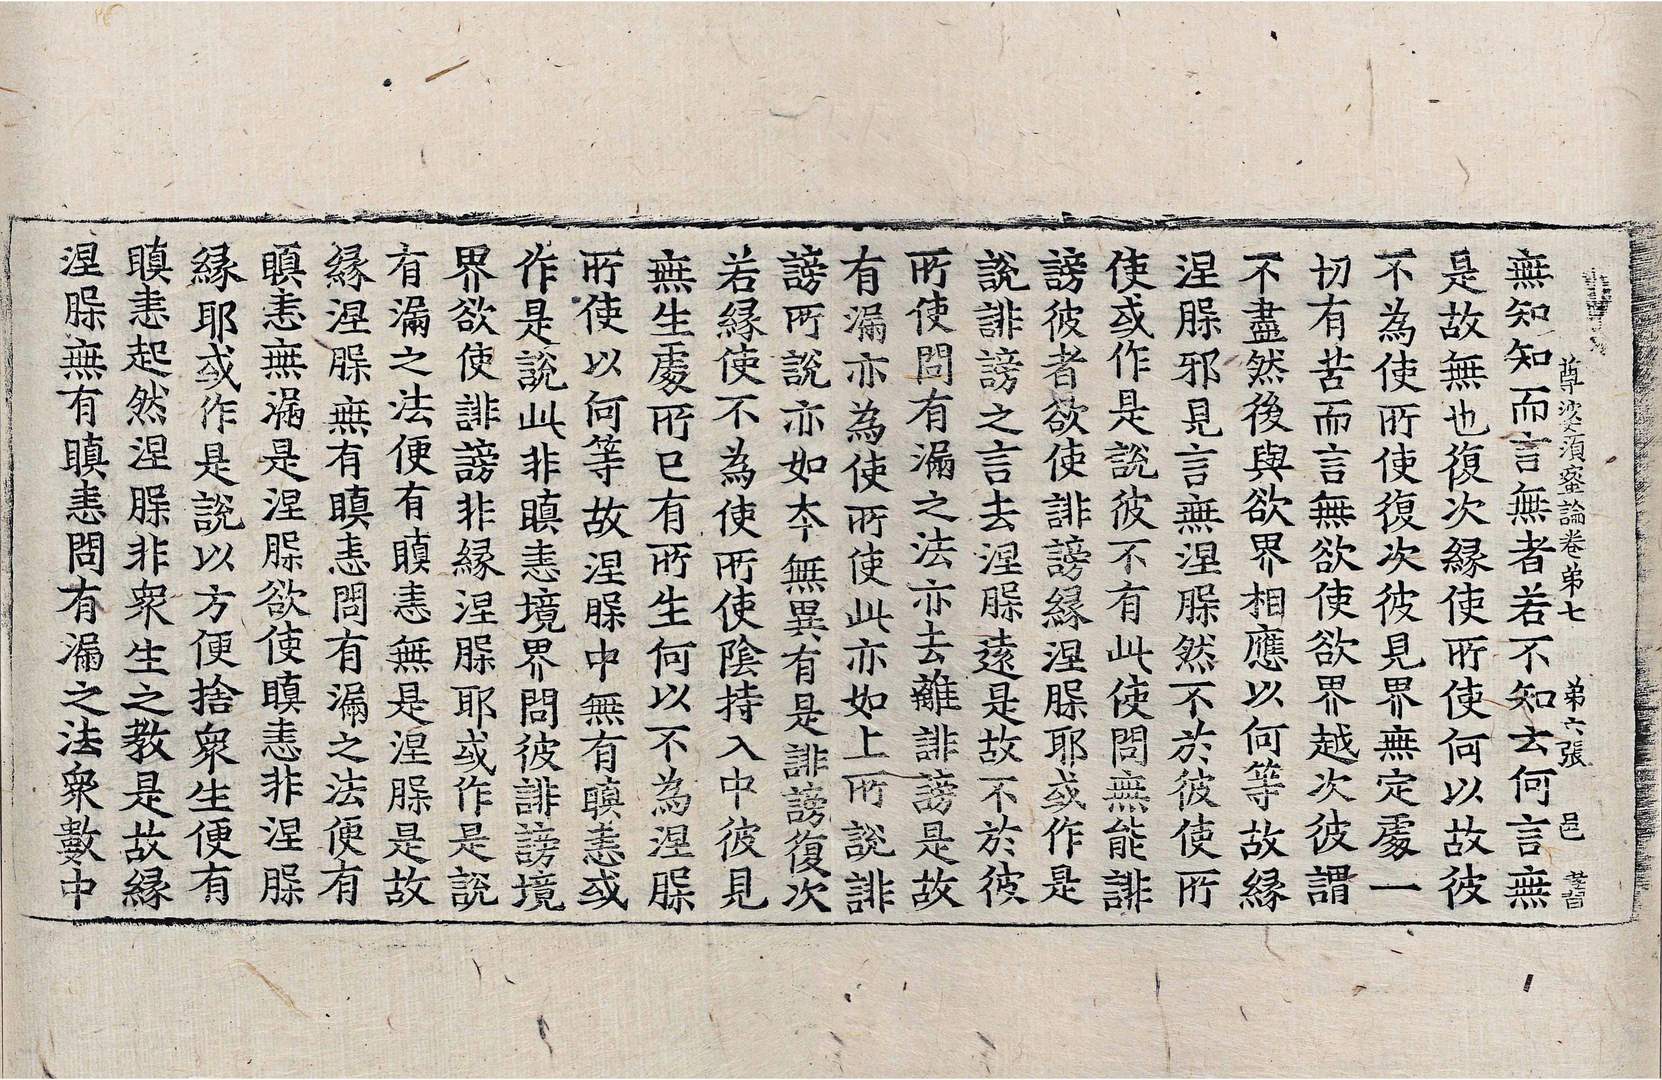 尊婆須蜜論卷弟七 弟六張 邑
無知知而言無者若不知云何言無
是故無也復次縁使所使何以故彼
不為使所使復次彼見界無定處一
切有苦而言無欲使欲界越次彼謂
不盡然後與欲界相應以何等故縁
涅槃邪見言無涅槃然不於彼使所
使或作是說彼不有此使問無能誹
謗彼者欲使誹謗縁涅槃耶或作是
說誹謗之言去涅槃遠是故不於彼
所使問有漏之法亦去離誹謗是故
有漏亦為使所使此亦如上所說誹
謗所說亦如本無異有是誹謗復次
若縁使不為使所使陰持入中彼見
無生處所已有所生何以不為涅槃
所使以何等故涅槃中無有瞋恚或
作是說此非瞋恚境界問彼誹謗境
界欲使誹謗非縁涅槃耶或作是說
有漏之法便有瞋恚無是涅槃是故
縁涅槃無有瞋恚問有漏之法便有
瞋恚無漏是涅槃欲使瞋恚非涅槃
縁耶或作是說以方便捨衆生便有
瞋恚起然涅槃非衆生之教是故縁
涅槃無有瞋恚問有漏之法衆數中